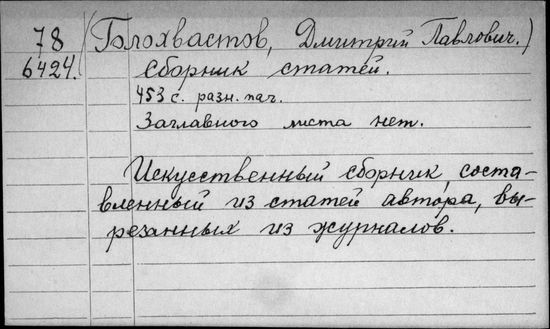 78 (Голохвастов, Дмитрий Павлович.)
6424. Сборник статей.
453 с. разн. паг.
Заглавного листа нет.
Искусственный сборник, соста-
вленный из статей автора, вы-
резанных из журналов.